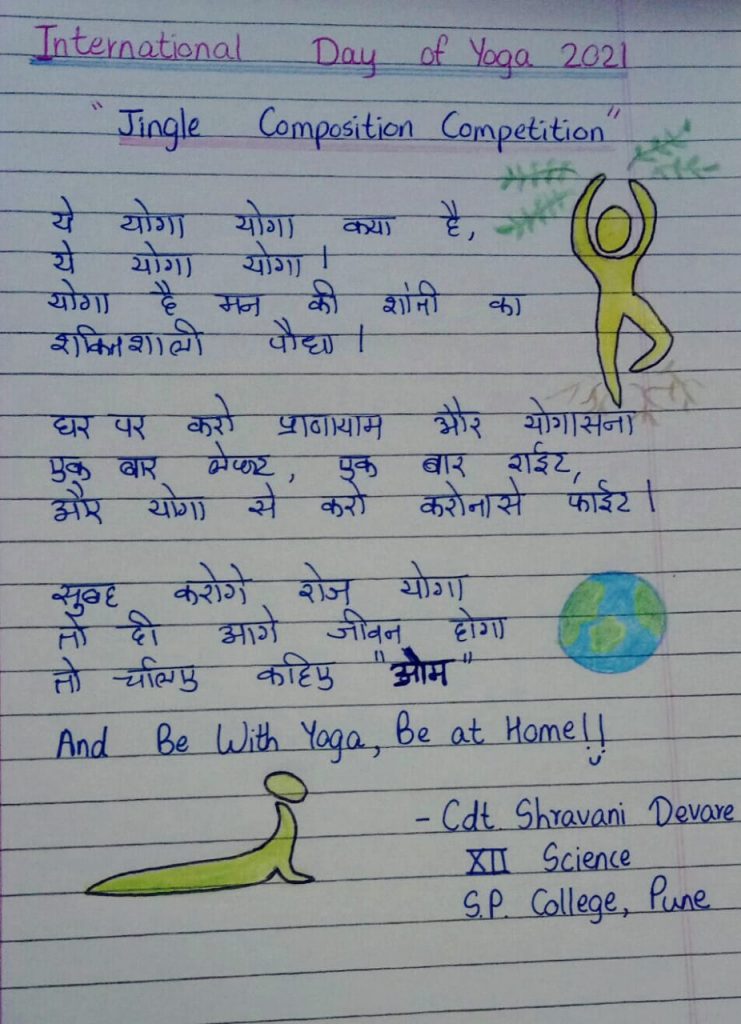 International Day of Yoga 2021
"Jingle Composition Competition"
ये योगा योगा क्या है,
ये योगा योगा।
योगा है मन की शांती का
शक्तिशाली पौधा।
घर पर करो प्राणायाम और योगासना
एक बार लेफ्ट, एक बार राईट,
और योगा से करो करोनासे फाईट।
सुबह करोगे रोज योगा
तो ही आगे जीवन होगा
तो चलिए कहिए "ओम"
And Be With Yoga, Be at Home!!
- Cdt. Shravani Devare
XII Science
S.P. College, Pune